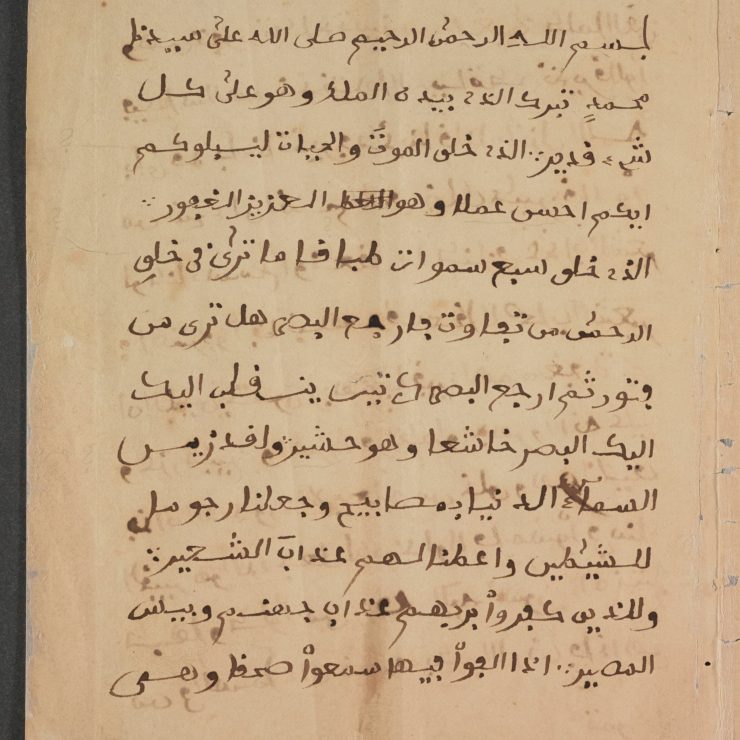 بسم الله الرحمن الرحيم صلى الله على سيدنا
محمد تبرك الذي بيده الملك وهو على كل
شيء قدير ∴ الذي خلق الموت والحيات ليبلوكم
ايكم احسن عملا وهو العزيز الغفور ∴
الذي خلق سبع سموات طباقا ما ترى في خلق
الرحمن من تفاوت فارجع البصر هل ترى من
فتور ثم ارجع البصر كرتين ينقلب اليك
اليك البصر خاشعا وهو حشير ∴ ولقد زين
السماء الدنيا بمصابيح وجعلنا رجوما
للشيطين واعطنا لهم عذاب الشعير ∴
وللذين كفروا بربهم عذاب جهنم وبيس
المصير ∴ اذا القوا فيها سمعوا وهي